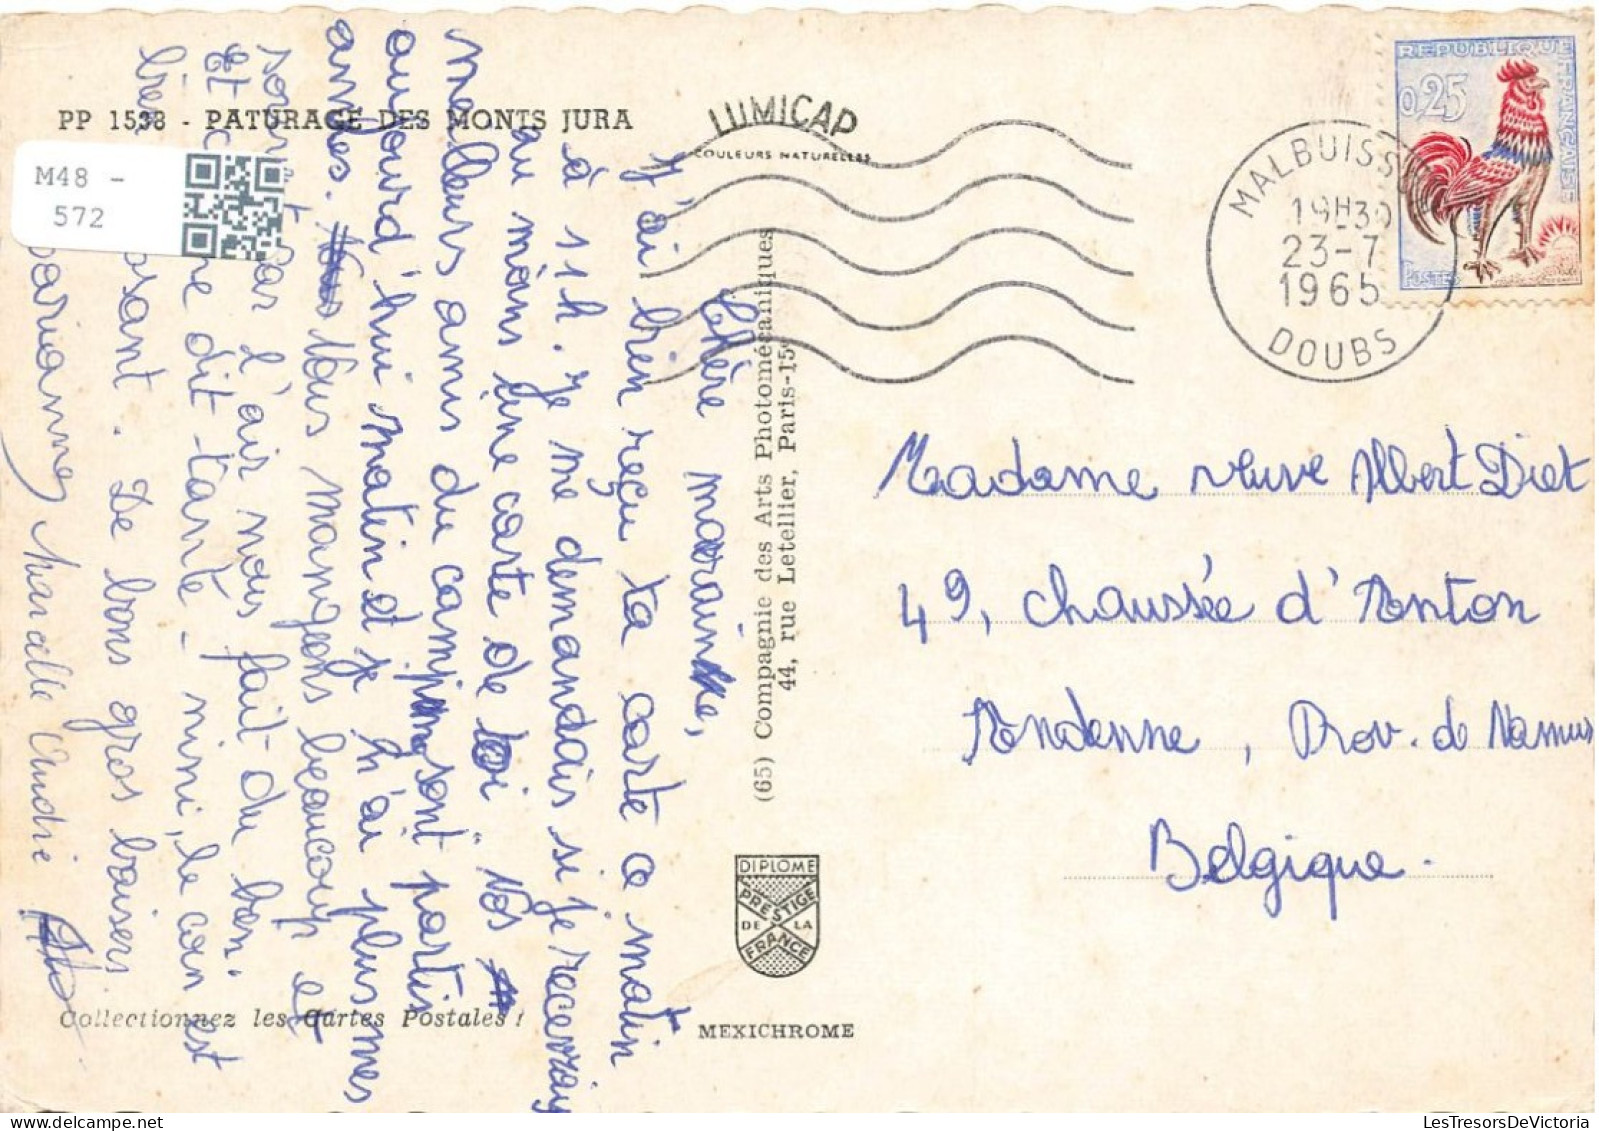 PP 1538 - PATURAGE DES MONTS JURA
M48 -
572
LUMICAP
COULEURS NATURELLES
REPUBLIQUE FRANÇAISE
0,25
POSTES
MALBUISSON
19H30
23-7
1965
DOUBS
Chère marraine,
J'ai bien reçu ta carte ce matin
à 11h. Je me demandais si je recevrais
au moins une carte de toi. Nos
meilleurs amis du camp sont partis
aujourd'hui matin et je n'ai plus mes
amies. Nous mangeons beaucoup et
par l'air nous fait du bon.
Et dit tante-mini, le car est
bien . De bons gros baisers
Marianne, Marcelle André
(65) Compagnie des Arts Photomécaniques
44, rue Letellier, Paris-15e
Madame veuve Albert Diet
49, Chaussée d'Anton
Andenne, Prov. de Namur
Belgique.
DIPLOME
PRESTIGE
DE LA
FRANCE
Collectionnez les Cartes Postales !
MEXICHROME
LesTresorsDeVictoria.com